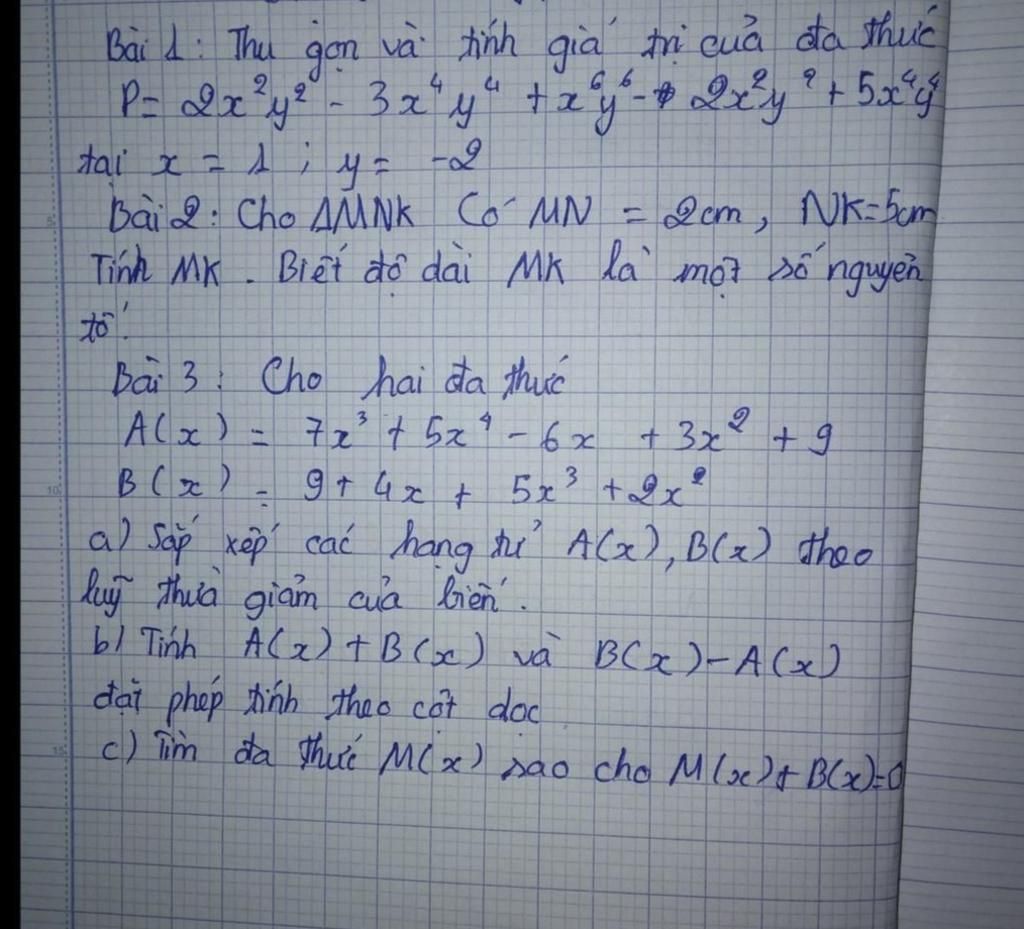 Bài 1: Thu gọn và tính giá trị của đa thức
P = 2x²y² - 3x⁴y⁴ + x⁶y⁶ - 2x²y² + 5x⁴y⁴
tại x = 1 ; y = -2
Bài 2: Cho ΔMNK Có MN = 2cm, NK=5cm
Tính MK. Biết độ dài MK là một số nguyên
tố.
Bài 3: Cho hai đa thức
A(x) = 7x³ + 5x⁴ - 6x + 3x² + 9
B(x) = 9 + 4x + 5x³ + 2x²
a) Sắp xếp các hạng tử A(x), B(x) theo
luỹ thừa giảm của biến.
b) Tính A(x) + B(x) và B(x) - A(x)
đặt phép tính theo cột dọc
c) Tìm đa thức M(x) sao cho M(x) + B(x)=0